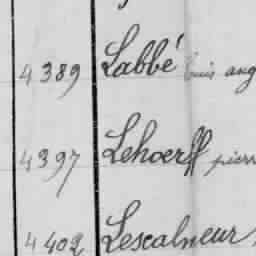 4389 Labbé Louis ang
4397 Lehoerff pierr
4402 Lescalneur